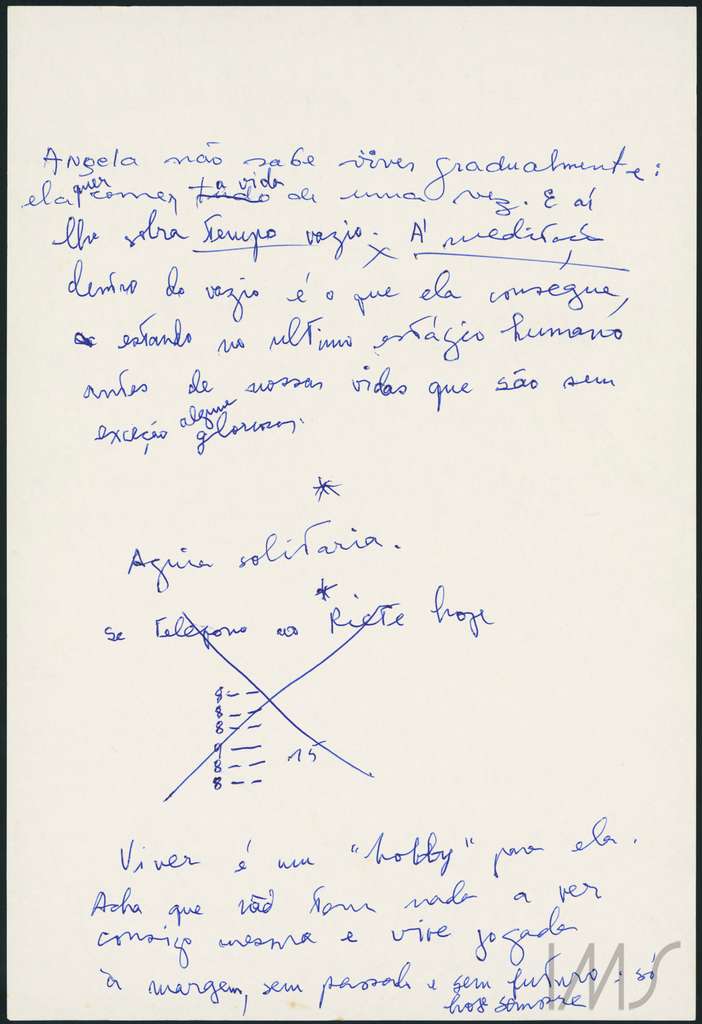 Angela não sabe viver gradualmente:
ela quer comer tudo a vida de uma vez. E aí
lhe sobra tempo vazio. A meditação
dentro do vazio é o que ela consegue,
estando no ultimo estágio humano
antes de nossas vidas que são sem
exceção alguma gloriosas.
*
Aguia solitaria.
*
se telefono ao hoje
8 – –
8 – –
8 – –
9 — 15
8 – –
8 – –
Viver é um "hobby" para ela.
Acha que não tem nada a ver
consigo mesma e vive jogada
à margem, sem passado e sem futuro: só
hoje
IMS